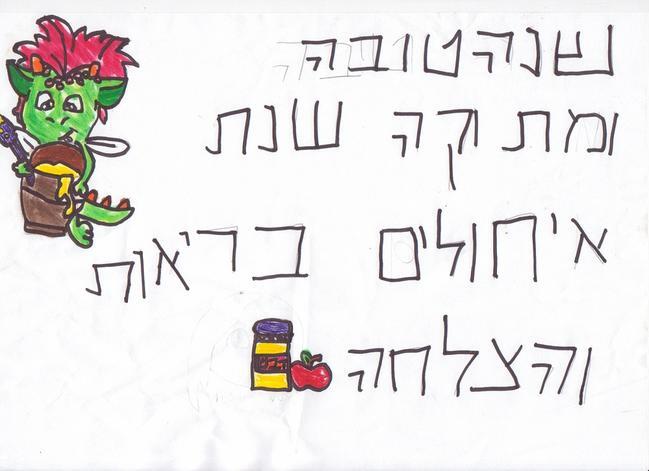 שנה טובה
ומתקה שנת
איחולים בריאות
והצלחה